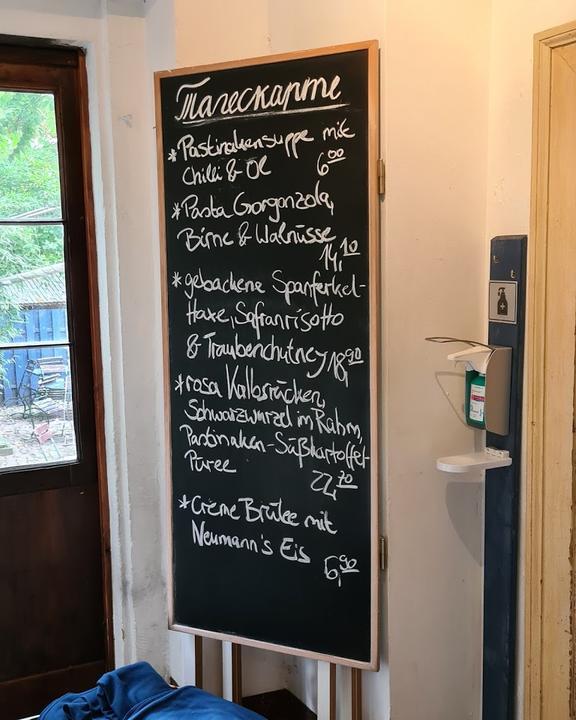 Tageskarte
* Pastinakensuppe mit
Chili & Öl 6,00
* Pasta Gorgonzola,
Birne & Walnüsse
14,10
* gebackene Spanferkel-
Haxe, Safranrisotto
& Traubenchutney 18,90
* rosa Kalbsrücken,
Schwarzwurzel im Rahm,
Pastinaken-Süßkartoffel-
Püree
22,70
* Crème Brûlée mit
Neumann's Eis
6,90